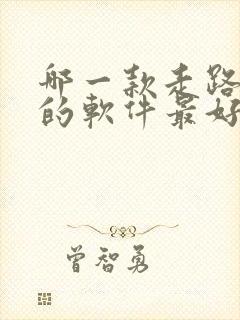 哪一款走路
的軟件最好
曾智勇